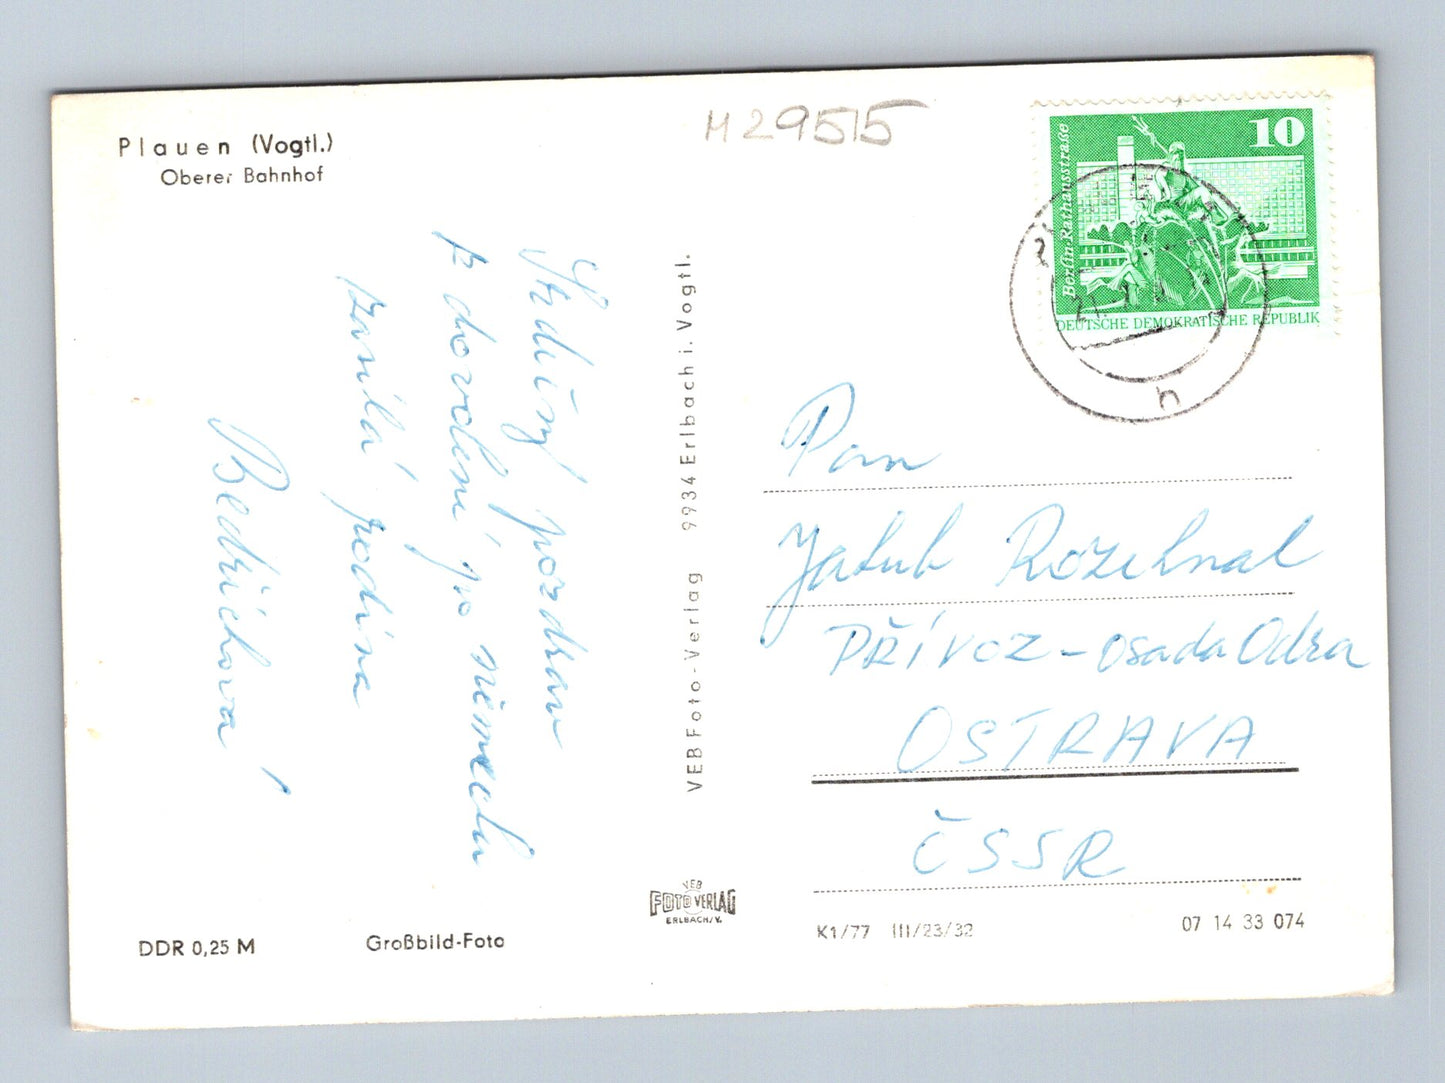 Plauen (Vogtl.)
Oberer Bahnhof
M29515
10
Berlin·Rathausstraße
DEUTSCHE DEMOKRATISCHE REPUBLIK
h
Srdečný pozdrav
z dovolené po německu
zasílá rodina
Bedřichova
VEB Foto-Verlag 9934 Erlbach i. Vogtl.
Pan
Jakub Rozehnal
PŘÍVOZ - osada Odra
OSTRAVA
ČSSR
VEB
FOTO VERLAG
ERLBACH/V.
DDR 0,25 M
Großbild-Foto
K1/77 III/23/32
07 14 33 074